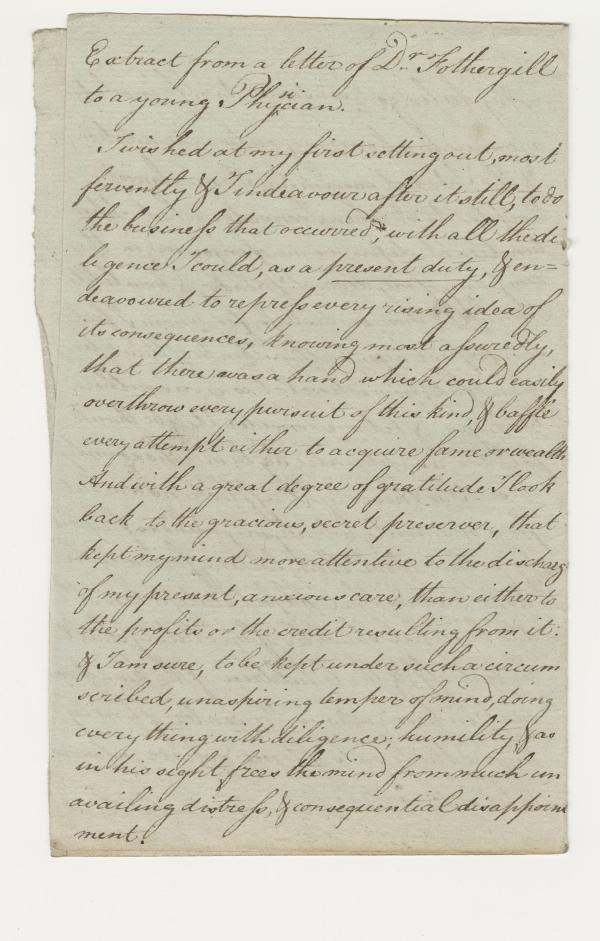 Extract from a letter of Dr. Fothergill
to a young Physician.
I wished at my first setting out, most
fervently & I indeavour after it still, to do
the business that occurred, with all the di
ligence I could, as a present duty, & en=
deavoured to repress every rising idea of
its consequences, knowing most assuredly,
that there was a hand which could easily
overthrow every pursuit of this kind, & baffle
every attempt either to acquire fame or wealth
And with a great degree of gratitude I look
back to the gracious, secret preserver, that
kept my mind more attentive to the discharg
of my present, anxious care, than either to
the profits or the credit resulting from it:
& I am sure, to be kept under such a circum
scribed, unaspiring temper of mind, doing
every thing with diligence, humility, & as
in his sight, frees the mind from much un
availing distress, & consequential disappoint
ment.